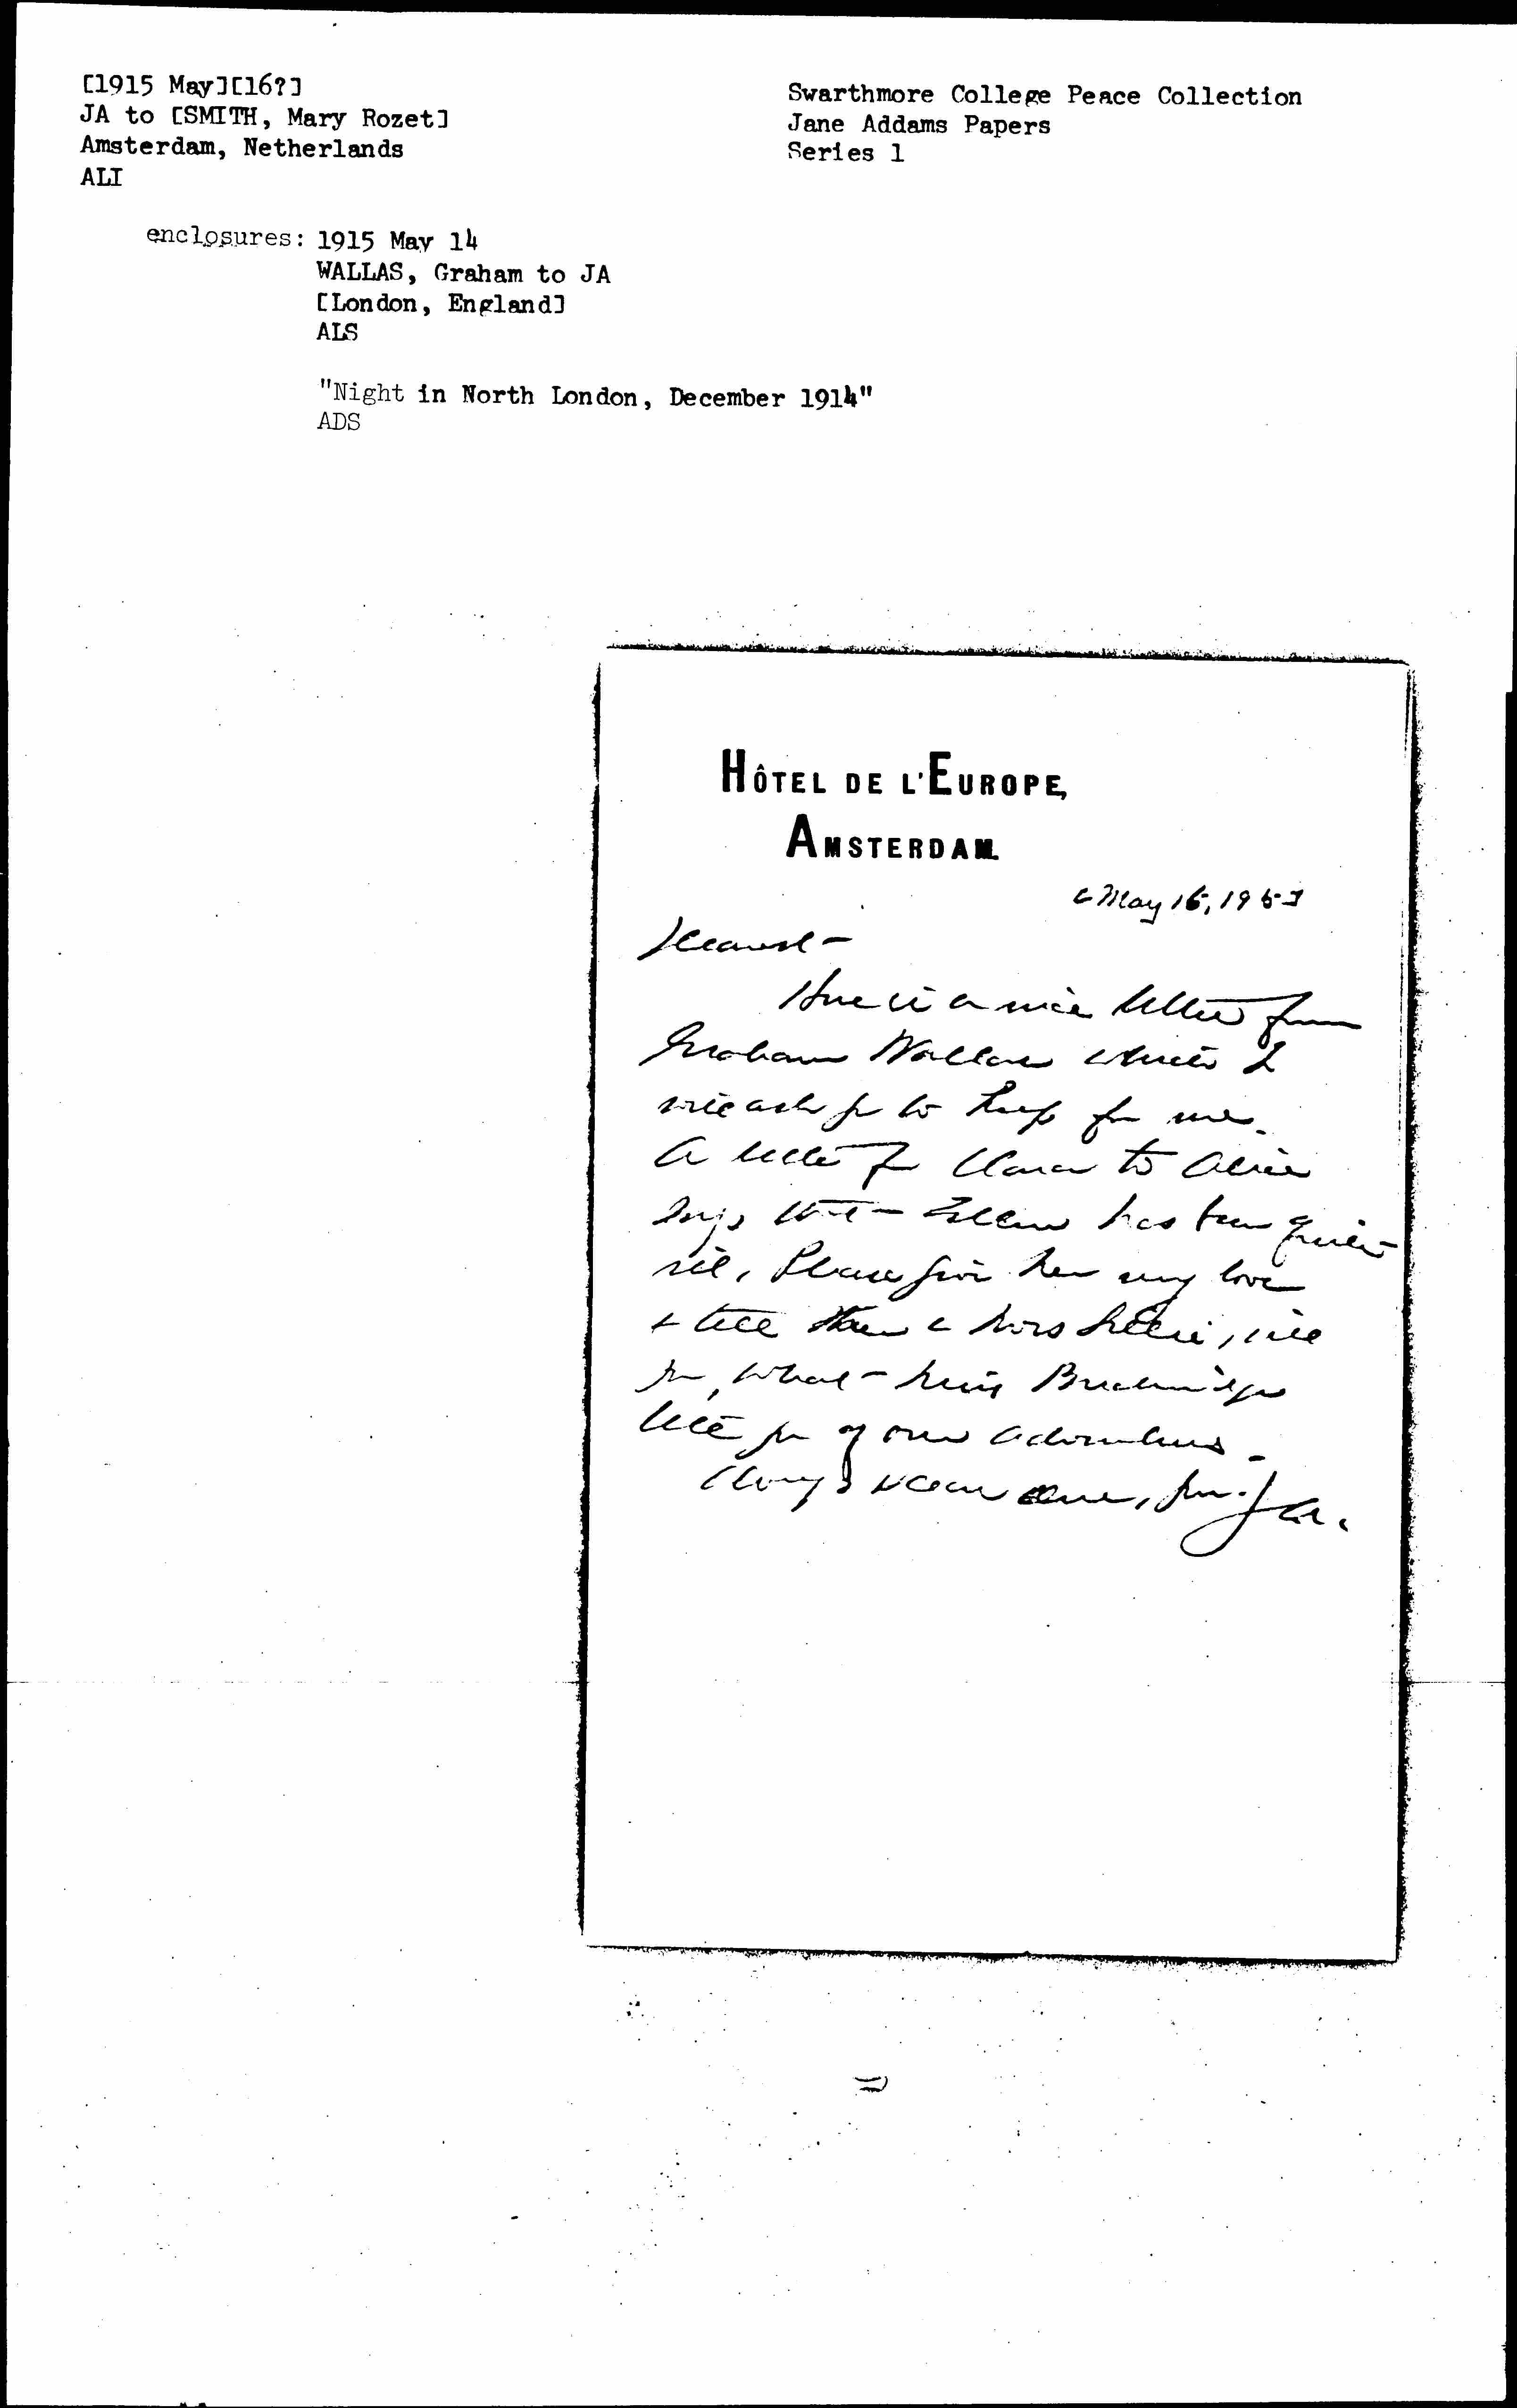 [1915 May][16?]
JA to [SMITH, Mary Rozet]
Amsterdam, Netherlands
ALI
Swarthmore College Peace Collection
Jane Addams Papers
Series 1
enclosures: 1915 May 14
WALLAS, Graham to JA
[London, England]
ALS
"Night in North London, December 1914"
ADS
HÔTEL DE L'EUROPE,
AMSTERDAM.
[May 16, 1915]
Dearest -
Here is a nice letter from
Graham Wallas which I
will ask you to keep for me.
A letter to Alice
says that has been quite
ill. Please give her my love
& tell
you, what Miss Breckinridge
tell you of our adventures -
Always dear one, yrs. J A.